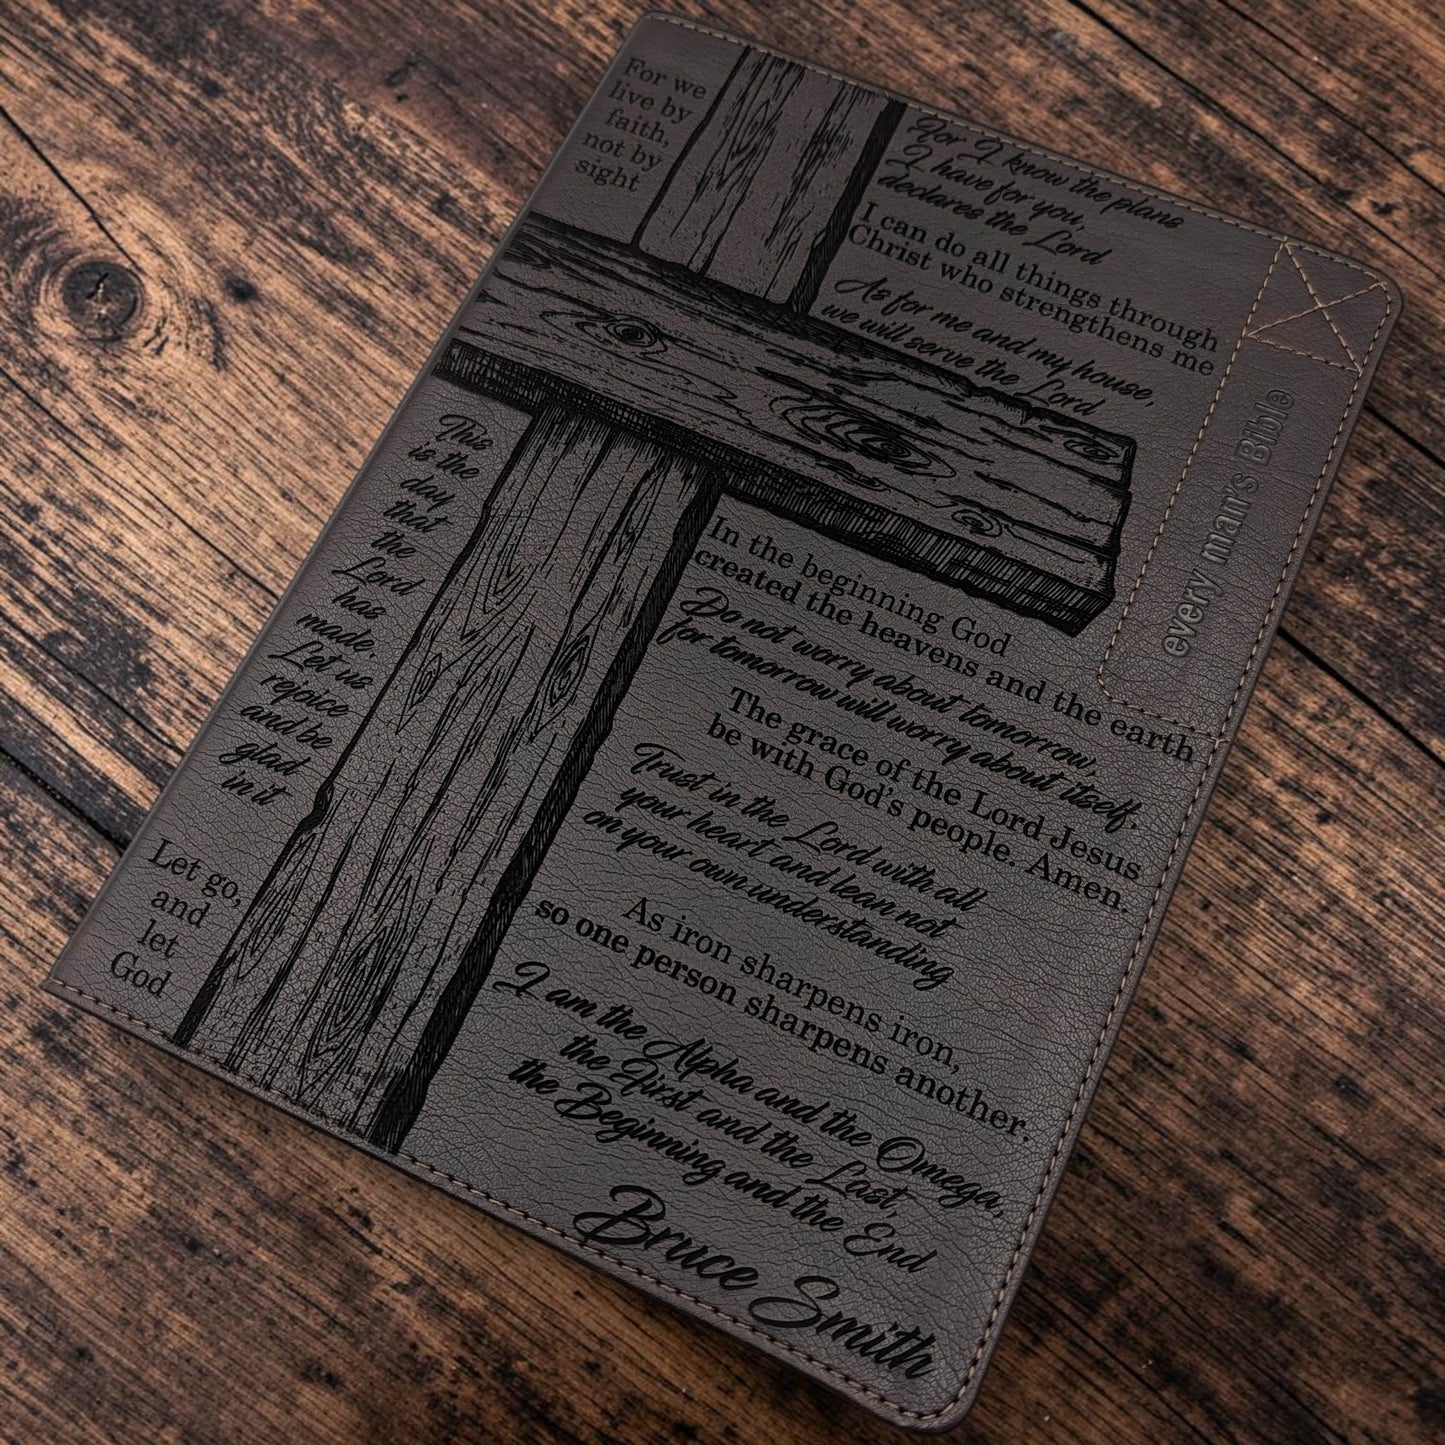 For we
live by
faith,
not by
sight
For I know the plans
I have for you,
declares the Lord
I can do all things through
Christ who strengthens me
As for me and my house,
we will serve the Lord
every man's Bible
This
is the
day
that
the
Lord
has
made.
Let us
rejoice
and be
glad
in it
In the beginning God
created the heavens and the earth
Do not worry about tomorrow,
for tomorrow will worry about itself.
The grace of the Lord Jesus
be with God's people. Amen.
Trust in the Lord with all
your heart and lean not
on your own understanding
As iron sharpens iron,
so one person sharpens another.
Let go,
and
let
God
I am the Alpha and the Omega,
the First and the Last,
the Beginning and the End
Bruce Smith